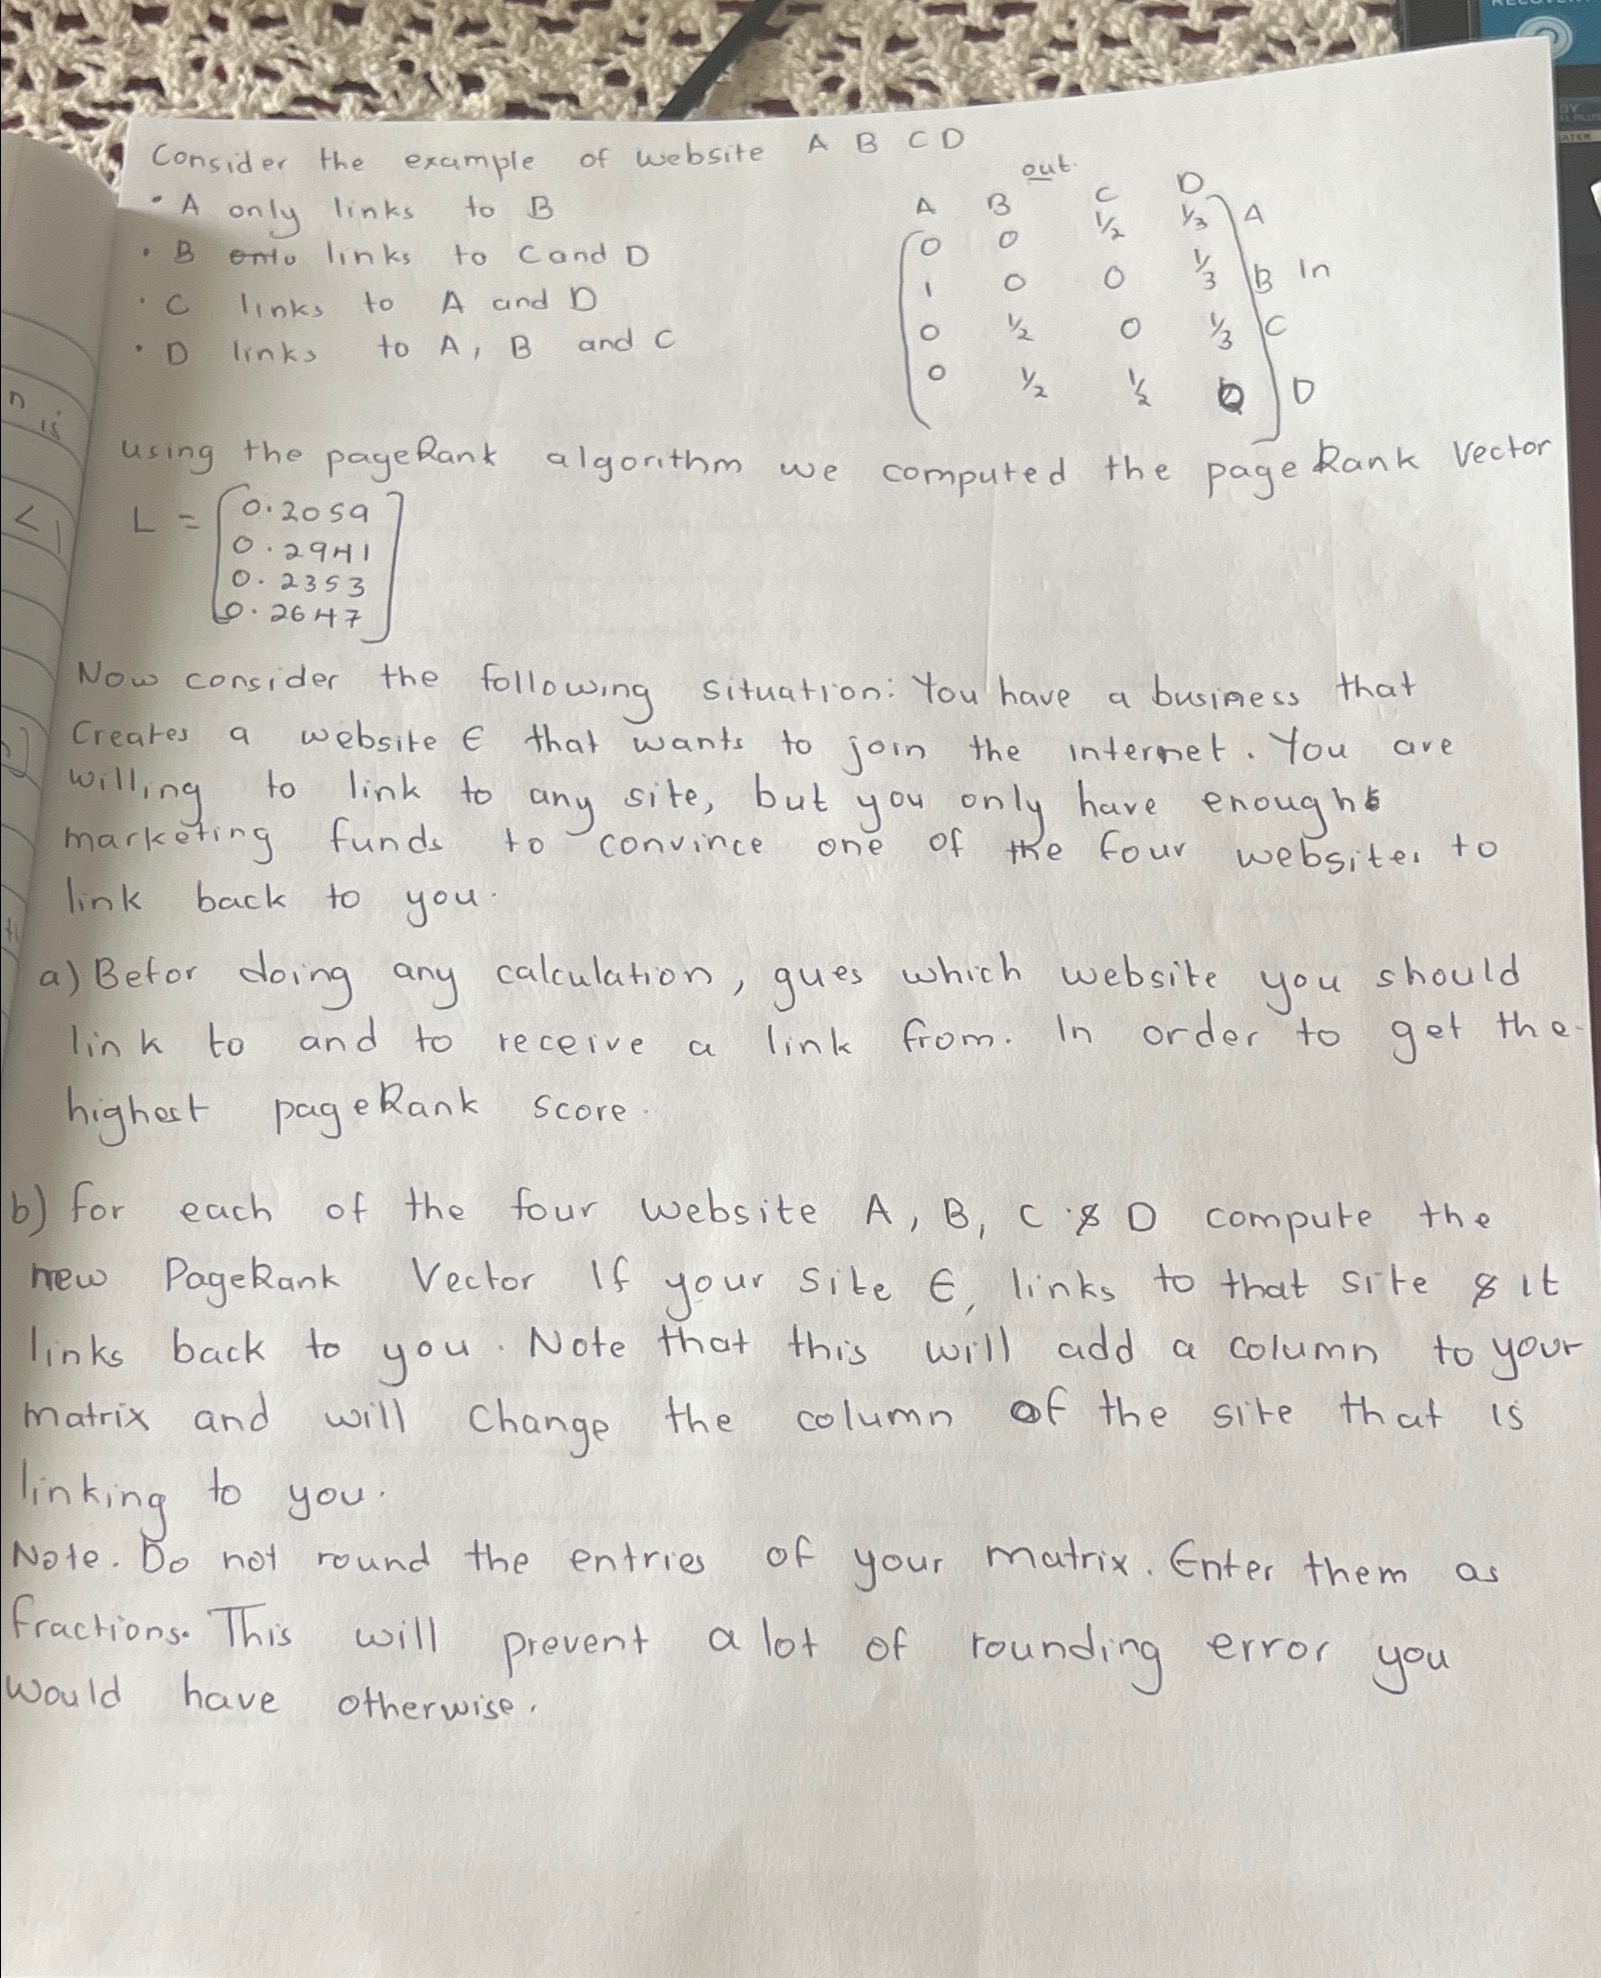 Consider the example of website A B C D
• A only links to B
• B onlu links to C and D
• C links to A and D
• D links to A, B and C
out.
A B C D
0 0 1/2 1/3 A
1 0 0 1/3 B In
0 1/2 0 1/3 C
0 1/2 1/2 0 D
using the pageRank algorithm we computed the pageRank Vector
L = 0.2059
0.2941
0.2353
0.2647
Now consider the following situation: You have a business that
Creates a website E that wants to join the internet. You are
willing to link to any site, but you only have enough
marketing funds to convince one of the four websites to
link back to you.
a) Befor doing any calculation, gues which website you should
link to and to receive a link from. In order to get the
highest pageRank score.
b) for each of the four website A, B, C & D compute the
new PageRank Vector If your site E, links to that site & it
links back to you. Note that this will add a column to your
matrix and will change the column of the site that is
linking to you.
Note. Do not round the entries of your matrix. Enter them as
fractions. This will prevent a lot of rounding error you
would have otherwise.
n
is